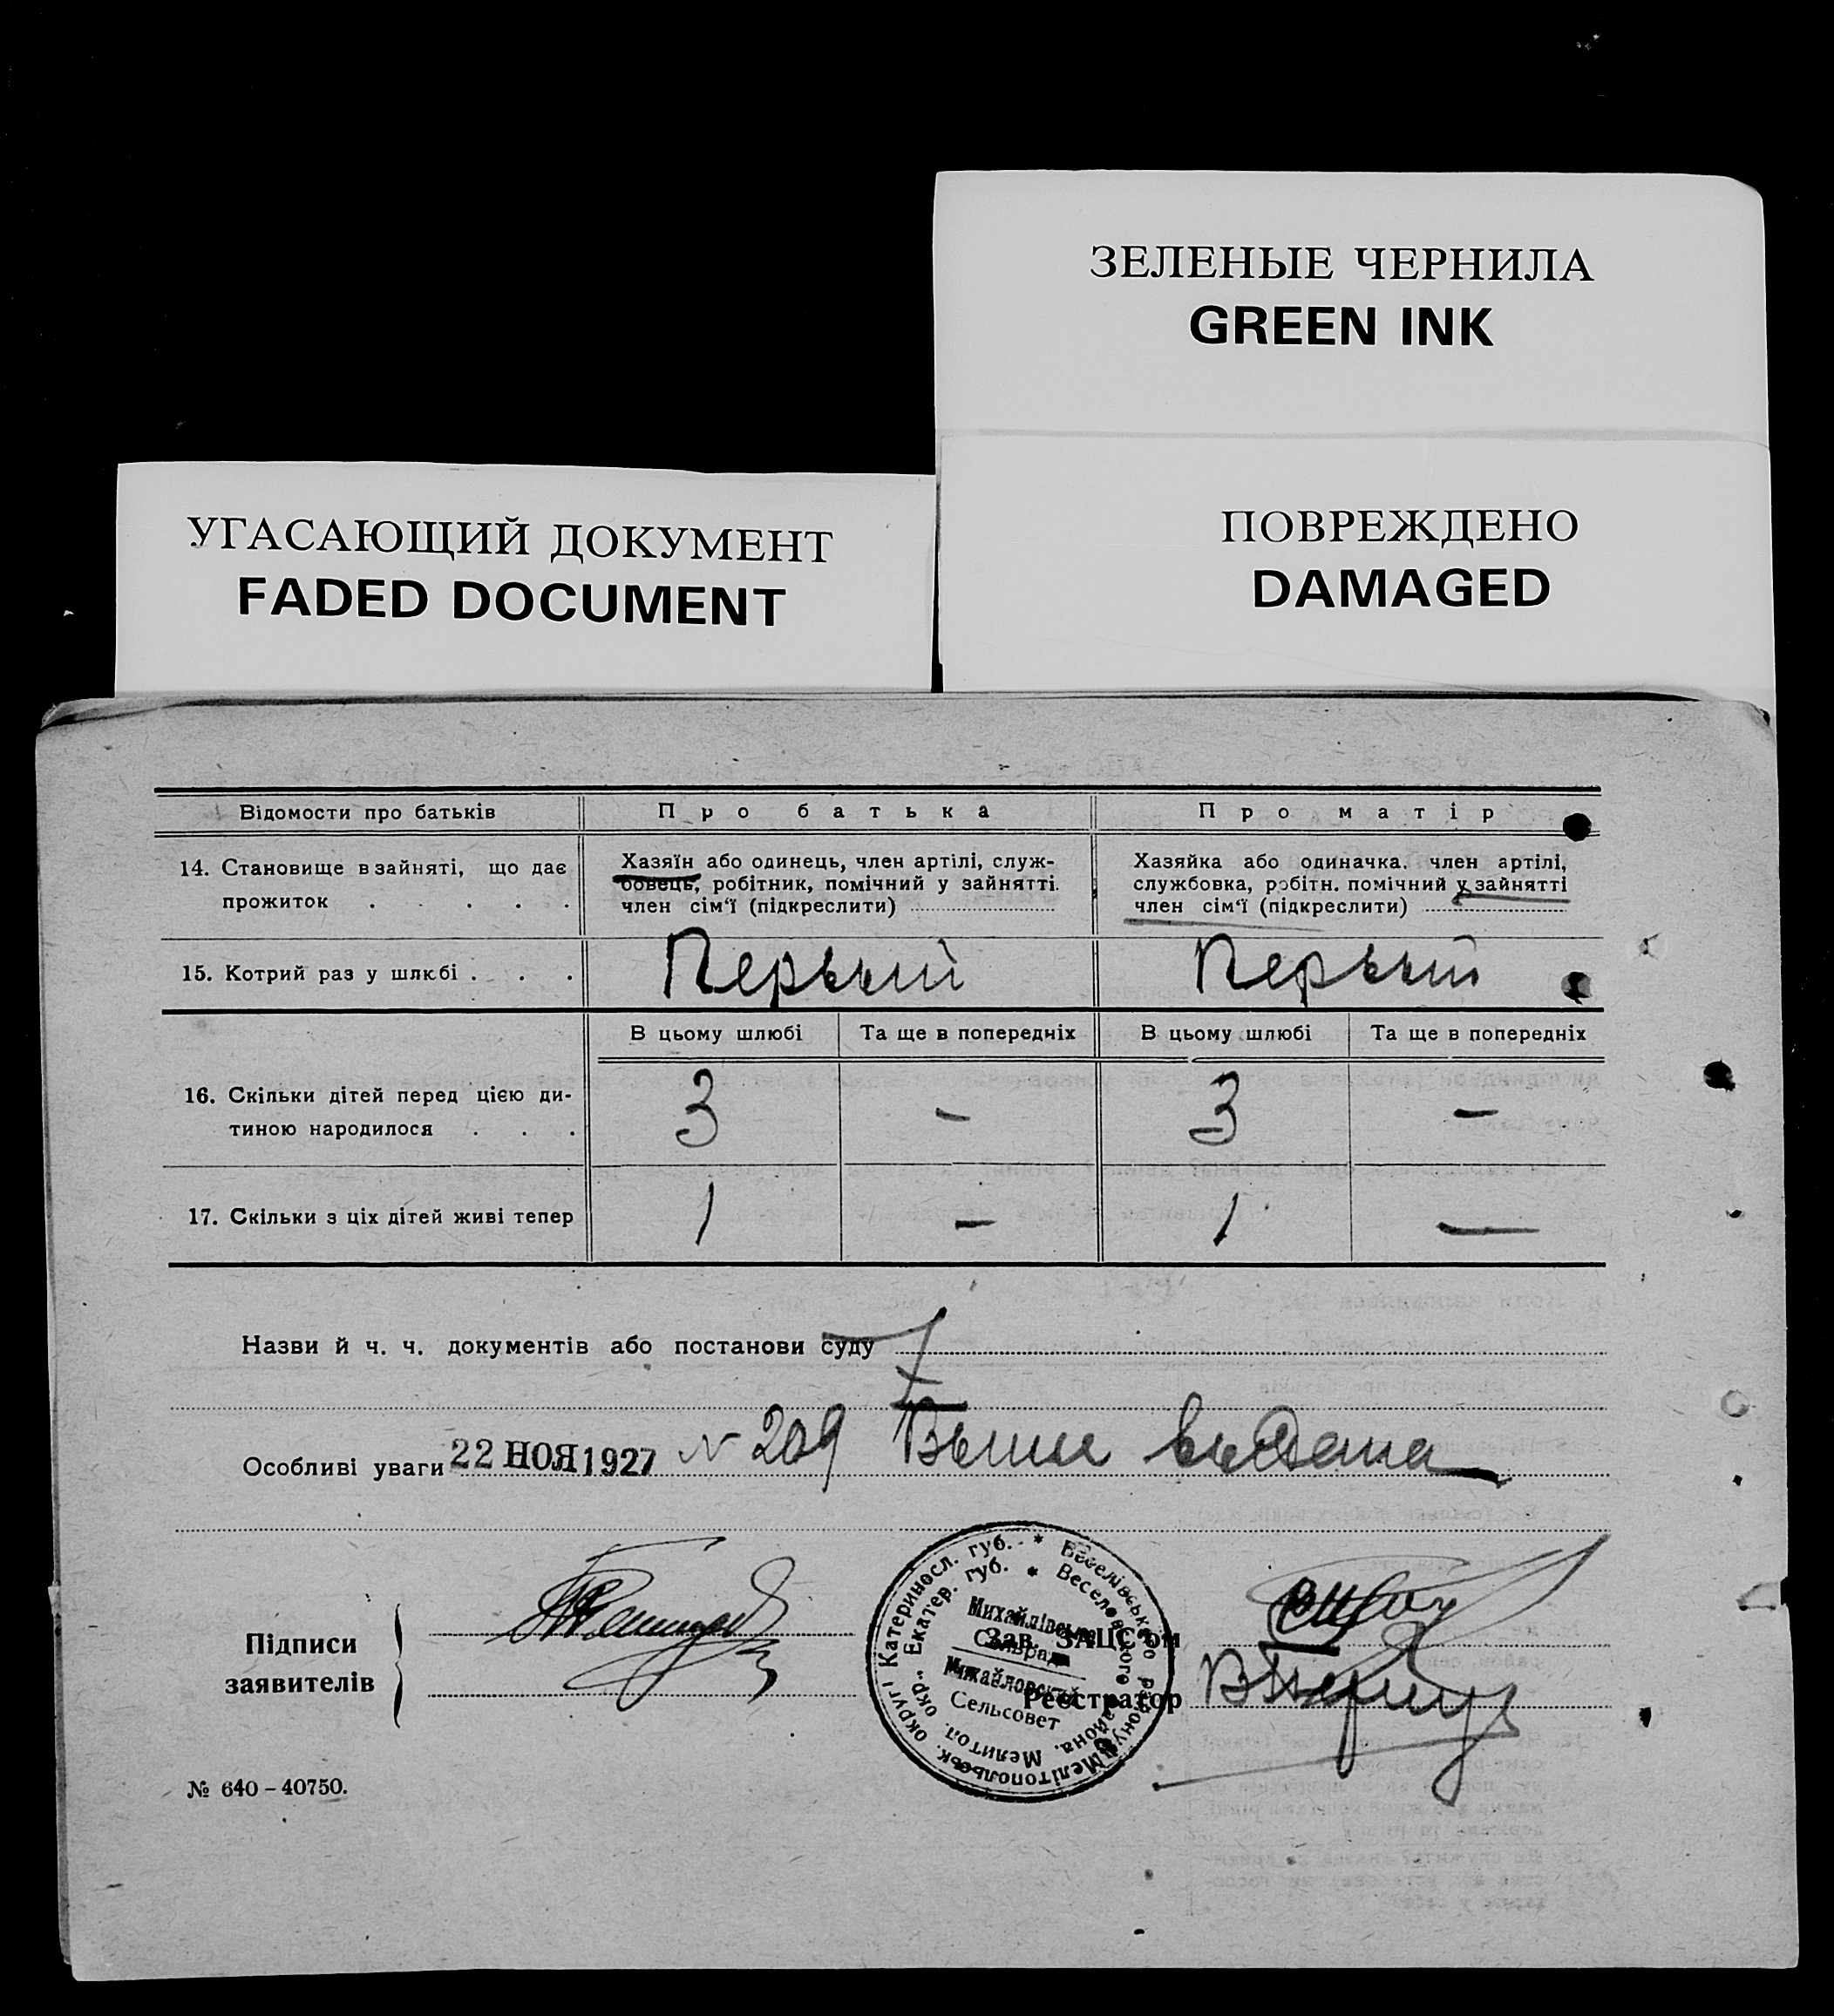 ЗЕЛЕНЫЕ ЧЕРНИЛА
GREEN INK
УГАСАЮЩИЙ ДОКУМЕНТ
FADED DOCUMENT
ПОВРЕЖДЕНО
DAMAGED
Відомости про батьків
Про батька
Про матір
14. Становище в зайняті, що дає
прожиток . . . . .
Хазяїн або одинець, член артілі, служ-
бовець, робітник, помічний у зайнятті.
член сім‘ї (підкреслити)
Хазяйка або одиначка. член артілі,
службовка, робітн. помічний у зайнятті
член сім‘ї (підкреслити)
15. Котрий раз у шлюбі . . .
Первый
Первый
В цьому шлюбі
Та ще в попередніх
В цьому шлюбі
Та ще в попередніх
16. Скільки дітей перед цією ди-
тиною народилося . . .
3
–
3
–
17. Скільки з ціх дітей живі тепер
1
–
1
—
Назви й ч. ч. документів або постанови суду
Особливі уваги 22 НОЯ 1927 № 209
Підписи
заявителів
Катериносл. губ. * Веселівського району Мелітопольськ. округі
Екатер. губ. * Веселовского района. Мелитоп. окр.
Михайлівська
Сільрада
Михайловский
Сельсовет
Зав. ЗАЦС‘ом
Реєстратор
№ 640–40750.